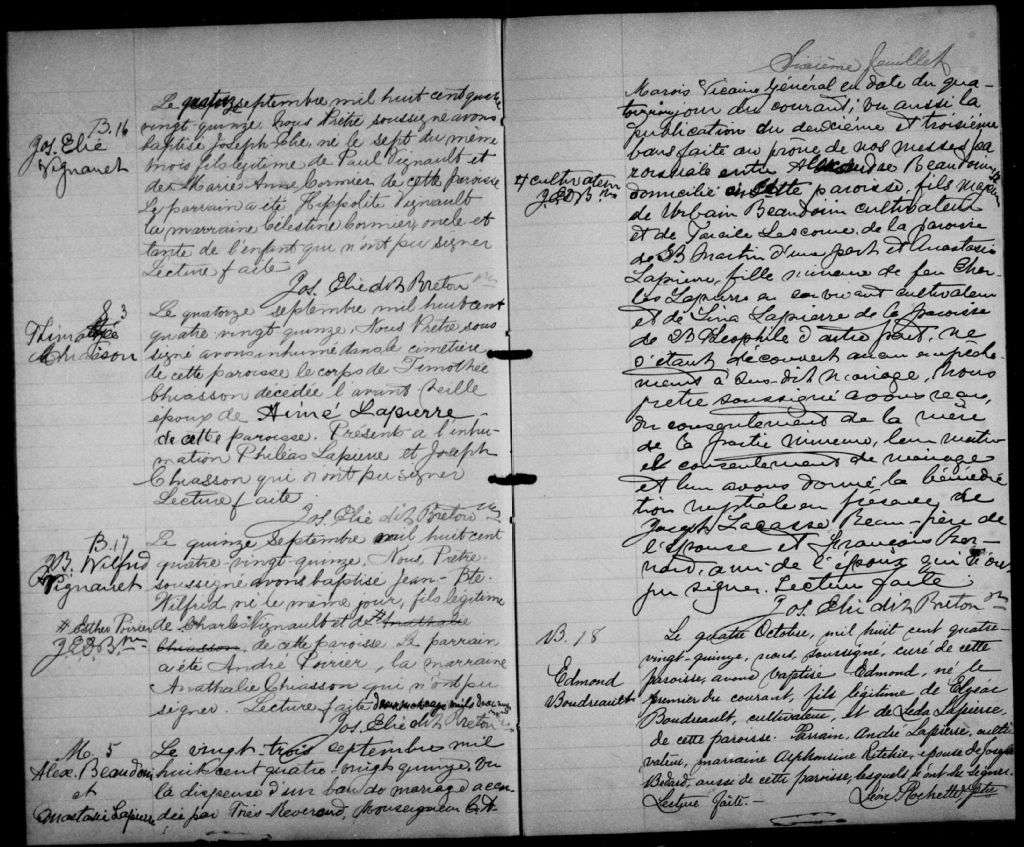 B. 16
Jos. Elie
Vignault
Le quatorze septembre mil huit cent quatre
vingt quinze nous Prêtre soussigné avons
baptisé Joseph Elie, né le sept du même
mois, fils légitime de Paul Vignault et
de Marie Anne Cormier de cette paroisse
Le parrain a été Hippolite Vignault
la marraine Célestine Cormier, oncle et
tante de l'enfant qui n'ont pu signer
Lecture faite
Jos. Elie dit Breton ptre
S 3
Thimothée
Chiasson
Le quatorze septembre mil huit cent
quatre vingt quinze, Nous Prêtre sous
signé avons inhumé dans le cimetière
de cette paroisse le corps de Timothée
Chiasson décédée l'avant veille
époux de Aimé Lapierre
de cette paroisse. Présents a l'inhu-
mation Philéas Lapierre et Joseph
Chiasson qui n'ont pu signer
Lecture faite
Jos. Elie dit Breton ptre
B. 17
J.B. Wilfrid
Vignault
Le quinze septembre mil huit cent
quatre-vingt-quinze, Nous Prêtre
soussigné avons baptisé Jean-Bte.
Wilfrid né le même jour, fils légitime
# Esther Poirier
J.E.D.B. ptre
de Charles Vignault et de # Anathalie
Chiasson, de cette paroisse Le parrain
a été André Poirier, la marraine
Anathalie Chiasson qui n'ont pu
signer. Lecture faite
Jos. Elie dit Breton
M. 5
Alex. Beaudoin
et
Anastasie Lapierre
Le vingt-trois septembre mil
huit cent quatre-vingt quinze, Vu
la dispense d'un ban de mariage accor-
dée par Très Révérend, Monseigneur C. A.
Sixième feuillet
Marois Vicaire Général en date du qua-
jour du courant; vu aussi la
publication du deuxième et troisième
bans faite au prône de nos messes pa
roissiale entre Beaudoin #
# cultivateur
J.E.D.B. ptre
domicilié en cette paroisse, fils majeur
de Urbain Beaudoin cultivateur
et de Tarcile Lescome, de la paroisse
de St Martin d'une part et Anastasie
Lapierre, fille mineure de feu Char-
les Lapierre en son vivant cultivateur
et de Lina Lapierre de la paroisse
de St Théophile d'autre part, ne
s'étant découvert aucun empêche-
ments à sus-dit mariage, Nous
prêtre soussigné avons reçu,
du consentement de la mère
de la partie mineure, leur mutu
el consentement de mariage
et leur avons donné la bénédic
tion nuptiale en présence de
Joseph Lacasse Beau-père de
l'épouse et François Ber-
nard, ami de l'époux qui n'ont
pu signer. Lecture faite
Jos. Elie dit Breton ptre
B. 18
Edmond
Boudreault
Le quatre Octobre, mil huit cent quatre-
vingt-quinze, nous, soussigné, curé de cette
paroisse, avons baptisé Edmond, né le
premier du courant, fils légitime de Elzéar
Boudreault, cultivateur, et de Léda Lapierre,
de cette paroisse. Parrain, André Lapierre, culti-
vateur, marraine Alphonsine Ritchie, épouse de Joseph
Bédard, aussi de cette paroisse, lesquels n'ont su signer.
Lecture faite.-
Léon Rochette ptre